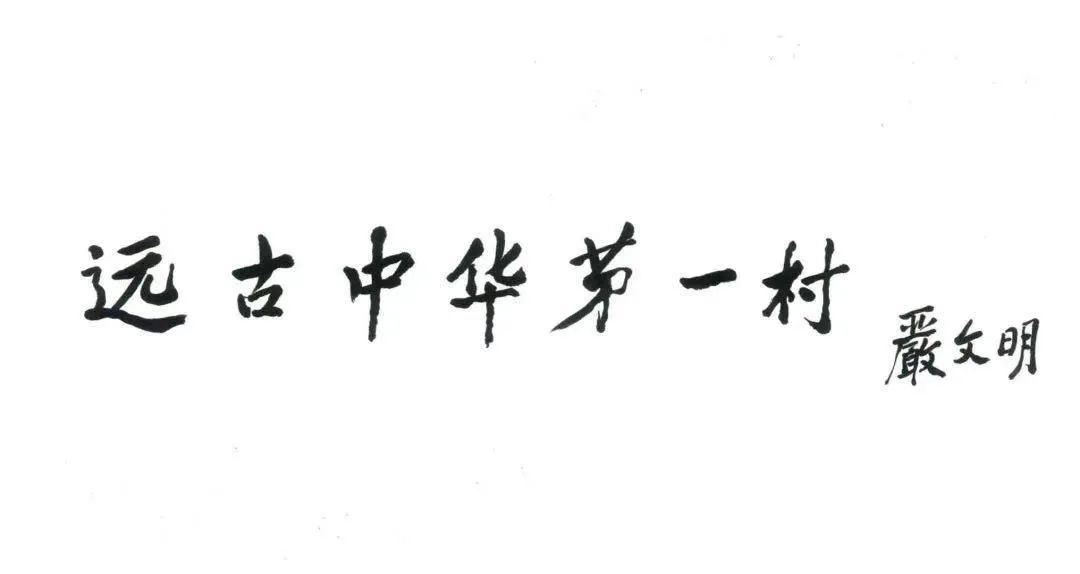 远古中华第一村
嚴文明